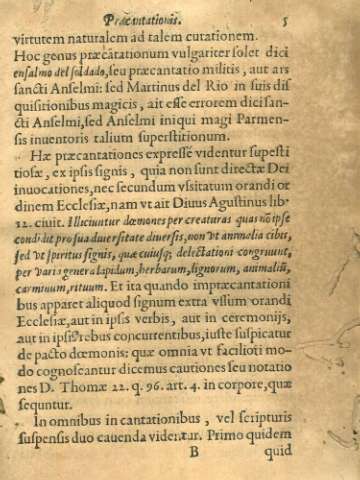 Præcantationis. 5
virtutem naturalem ad talem curationem.
Hoc genus præcãtationum vulgariter solet dici
ensalmo del soldado, seu præcantatio militis, aut ars
sancti Anselmi: sed Martinus del Rio in suis dis
quisitionibus magicis, ait esse errorem dici san-
cti Anselmi, sed Anselmi iniqui magi Parmen-
sis inuentoris talium superstitionum.
Hæ præcantationes expressè videntur supesti
tiosæ, ex ipsis signis, quia non sunt directæ Dei
inuocationes, nec secundum vsitatum orandi or
dinem Ecclesiæ, nam vt ait Diuus Agustinus lib.
12. ciuit. Illiciuntur dæmones per creaturas quas nõ ipse
condidit pro sua diuersitate diuersis, non vt animalia cibis,
sed vt spiritus signis, quæ cuiusq; delectationi congruunt,
per varia genera lapidum, herbarum, lignorum, animaliũ,
carminum, rituum. Et ita quando impræcantationi
bus apparet aliquod signum extra vsum orandi
Ecclesiæ, aut in ipsis verbis, aut in ceremonijs,
aut in ipsis rebus concurrentibus, iuste suspicatur
de pacto dœmonis: quæ omnia vt facilioti mo-
do cognoscantur dicemus cautiones seu notatio
nes D. Thomæ 22. q. 96. art. 4. in corpore, quæ
sequntur.
In omnibus in cantationibus, vel scripturis
suspensis duo cauenda videntur. Primo quidem
B quid